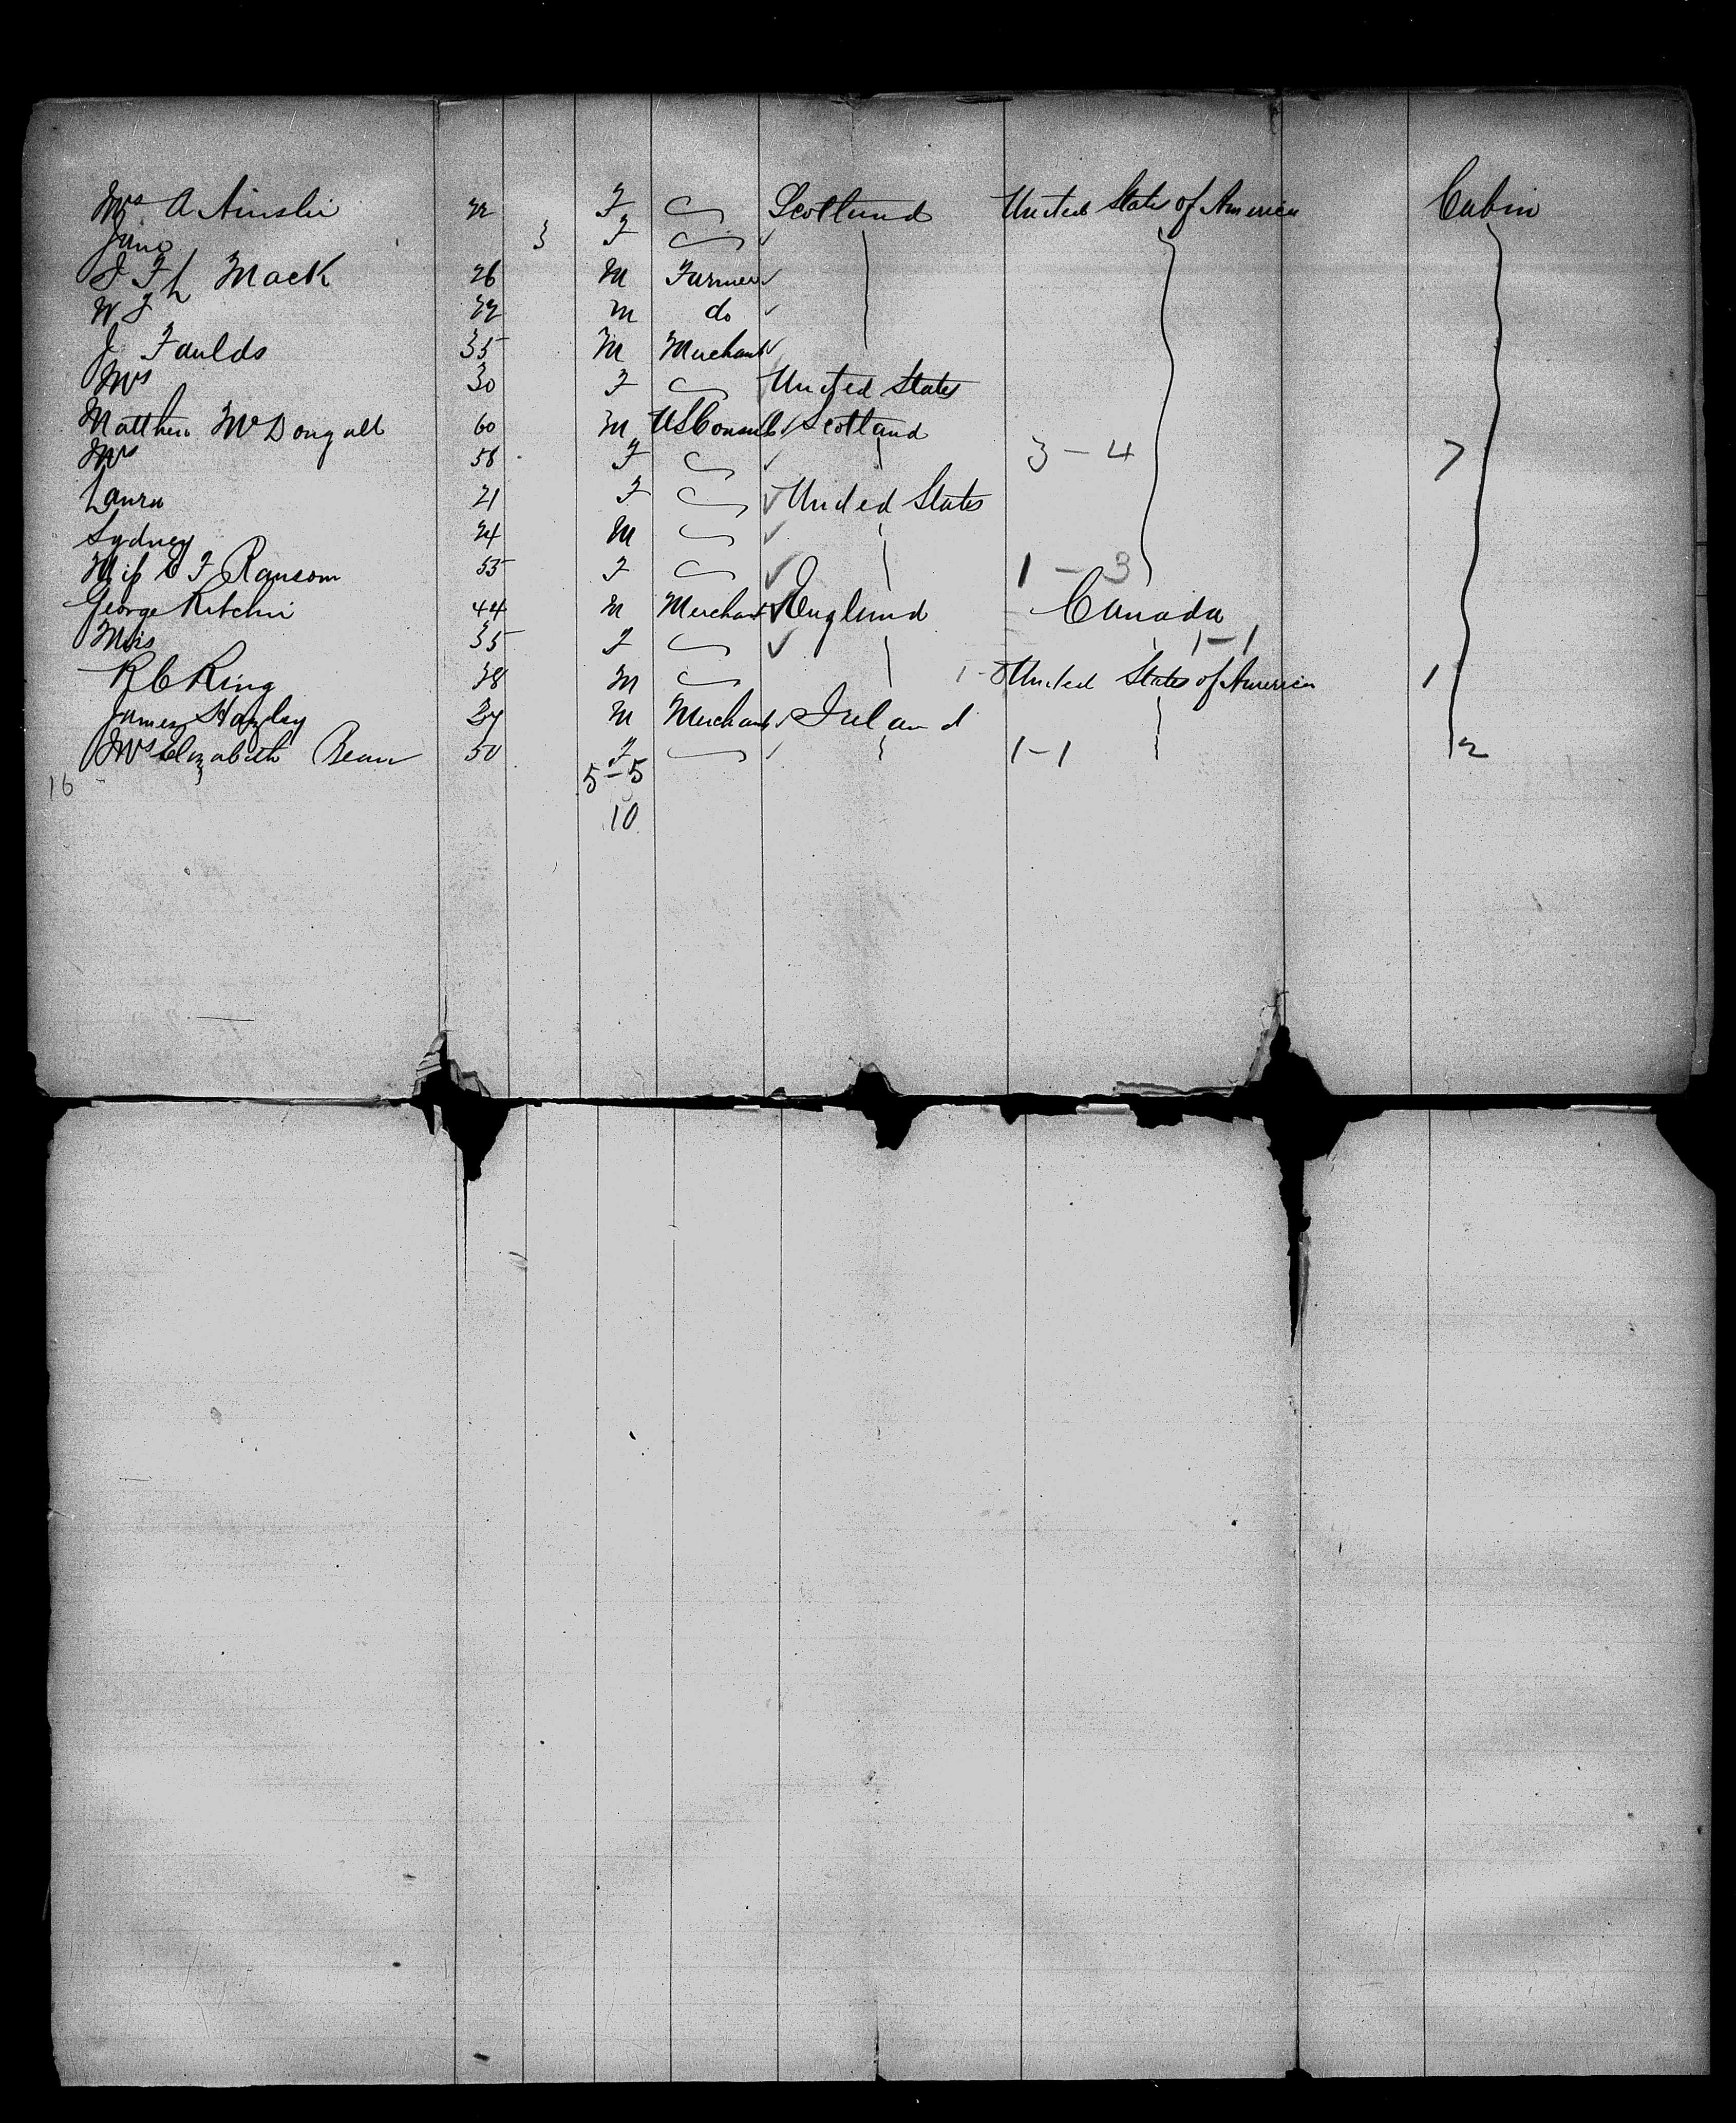 Mrs A Ainslie 22 F Scotland United States of America Cabin
Jane 3 F
J F L Mack 26 M Farmer
W F 22 M do
J Faulds 35 M Merchant
Mrs 30 F United States
Matthew McDougall 60 M US Consul Scotland
Mrs 58 F 3-4 7
Laura 21 F United States
Sydney 24 M
Miss F Ransom 55 F 1-3
George Ritchie 44 M Merchant England Canada
Mrs 35 F 1-1
R C King 38 M 1- United States of America 1
James Hamley M Merchant Ireland
Mrs Elizabeth Bean 50 F 1-1 12
16 5-5
10